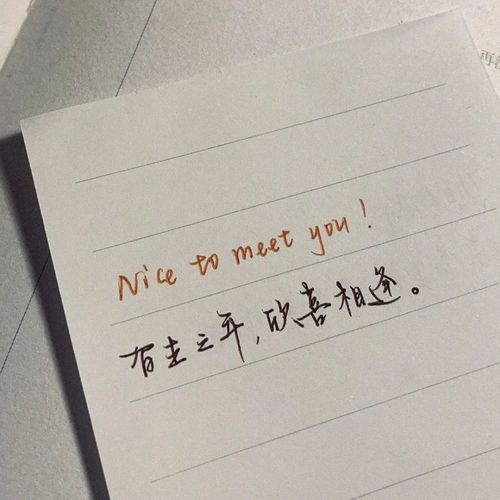 Nice to meet you!
有生之年,欣喜相逢。